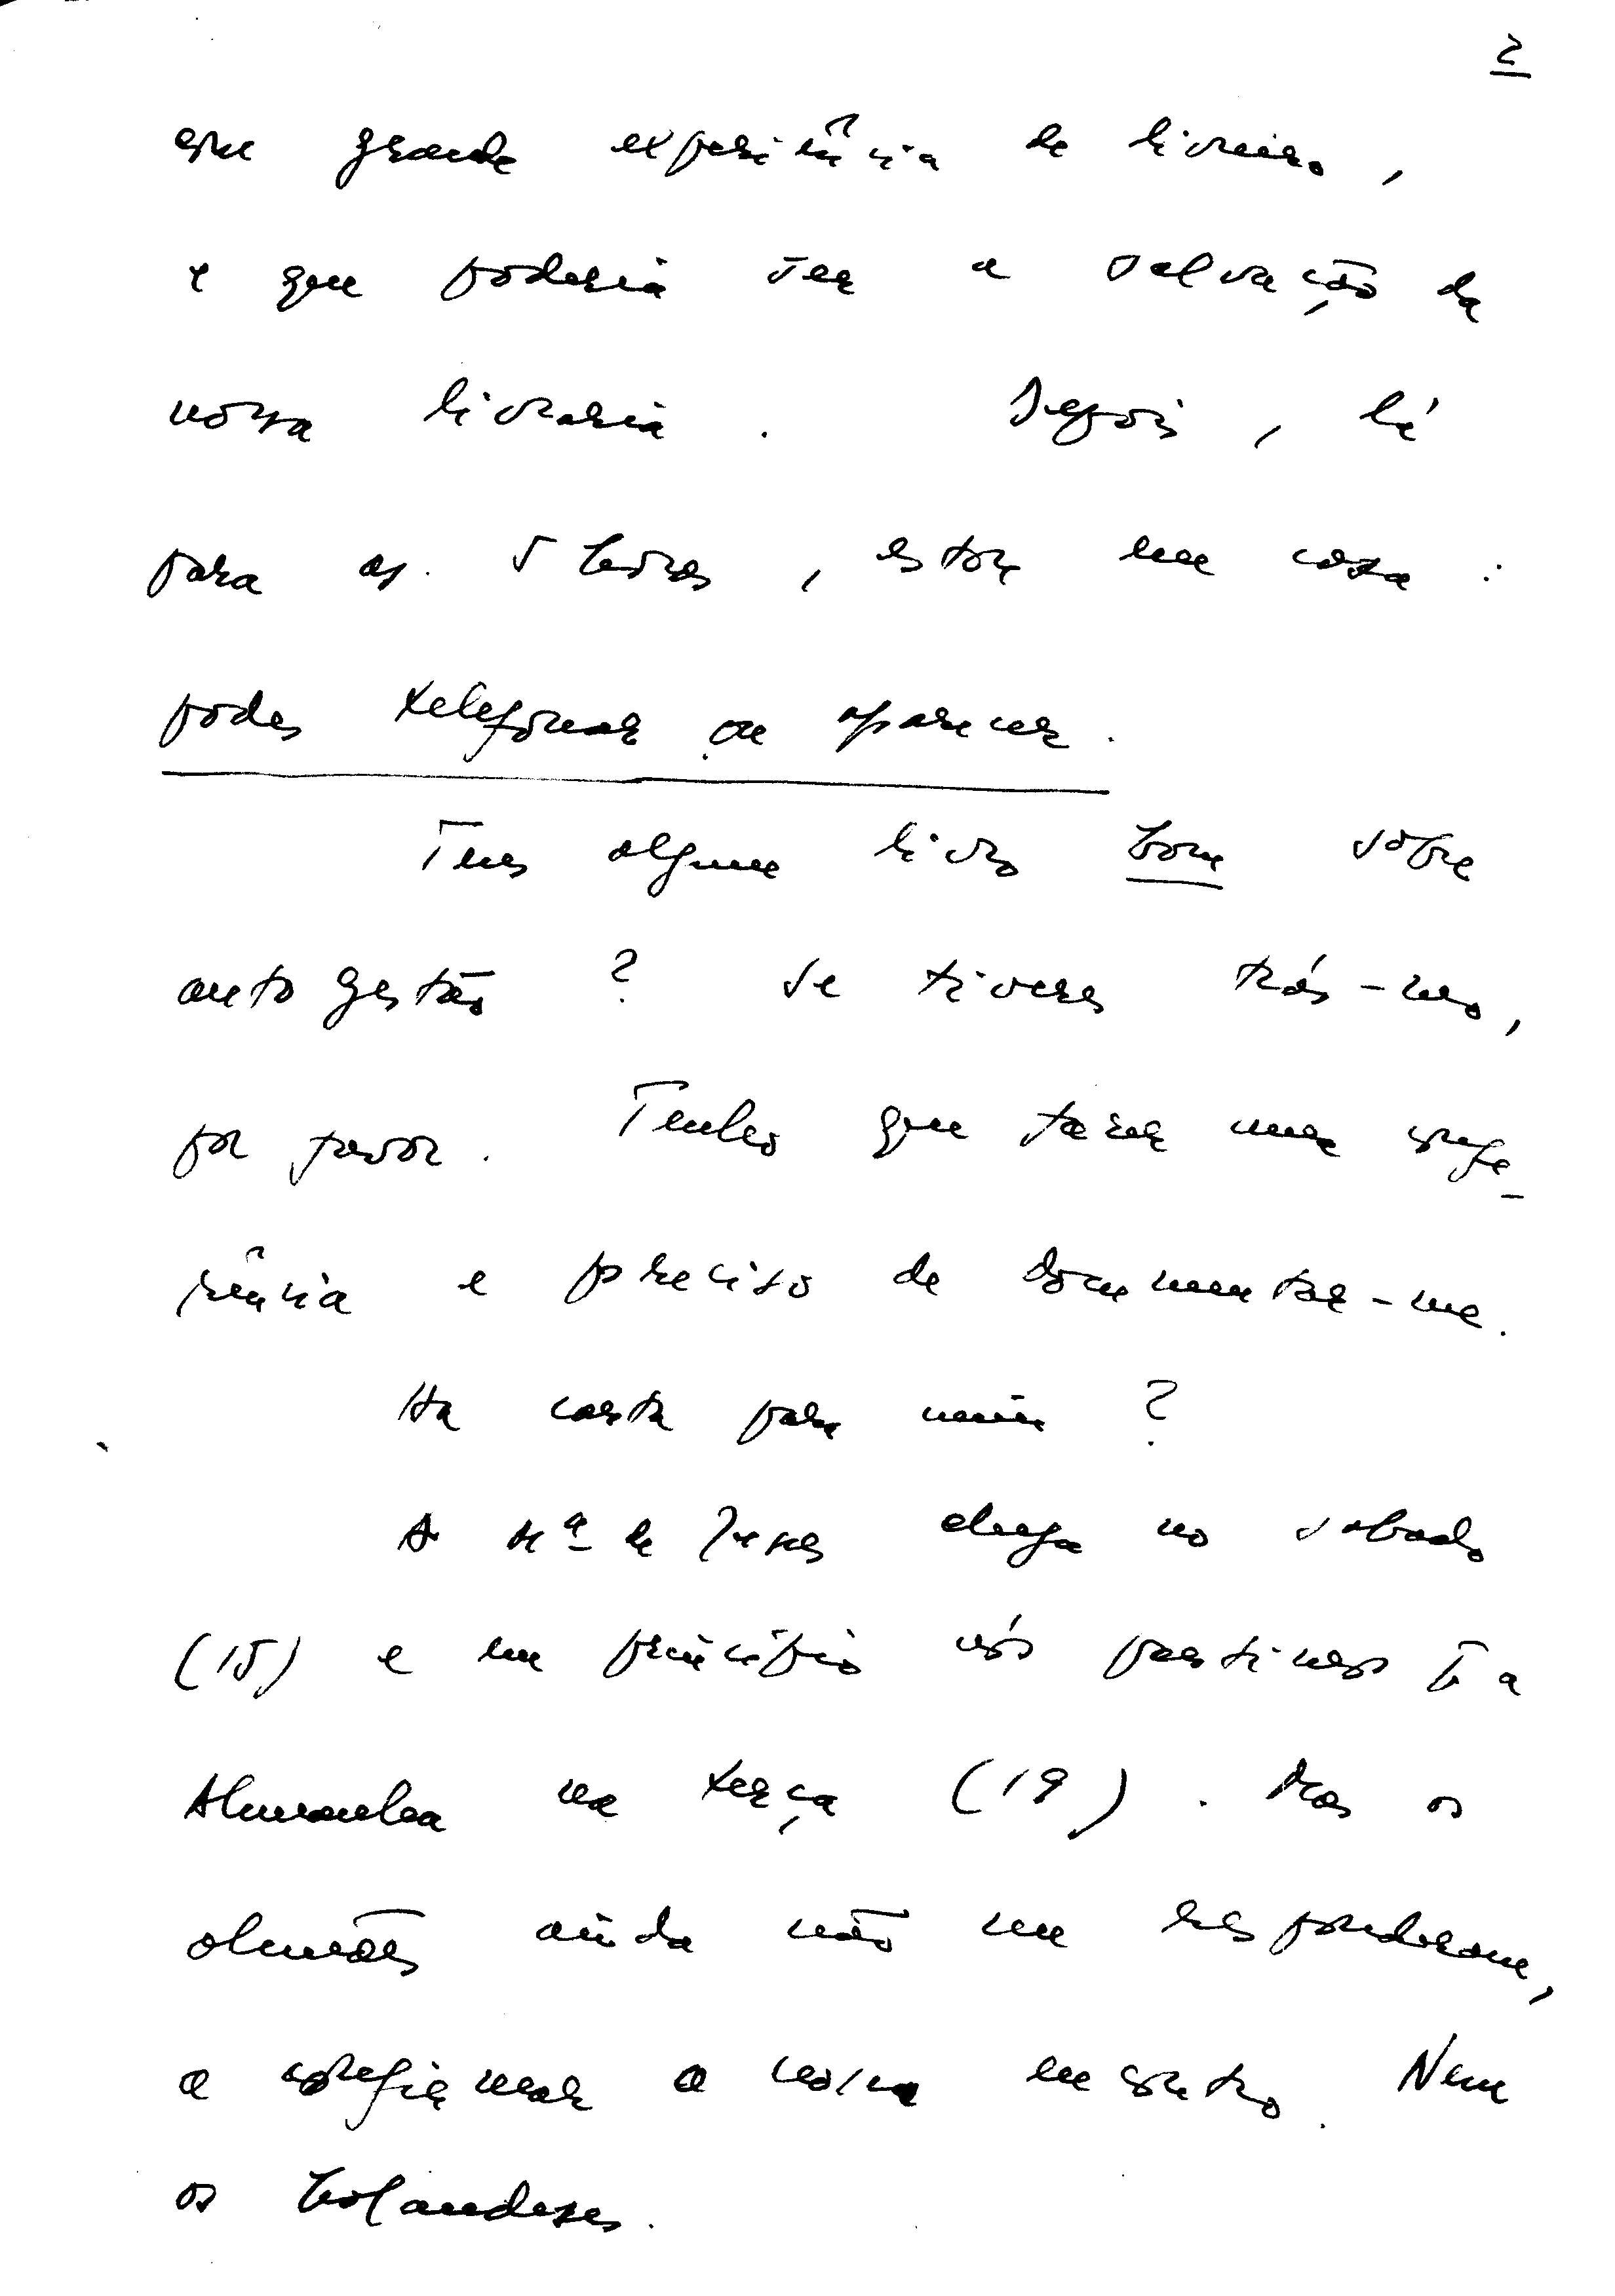 2
com grande experiência de livreiro,
e que poderia ser a salvação da
nossa livraria. Depois, lá
para as 5 horas, estou em casa:
podes telefonar ou aparecer.
Tens algum livro bom sobre
autogestão? Se tiveres trás-mo,
por favor. Tenho que fazer uma confe-
rência e preciso de documentar-me.
Ha carta para mim?
A Mª de Jesus chega no sabado
(15) e em princípio nós partimos p a
Alemanha na terça (19). Mas os
alemães ainda não me responderam,
a confirmar o nosso encontro. Nem
os holandeses.